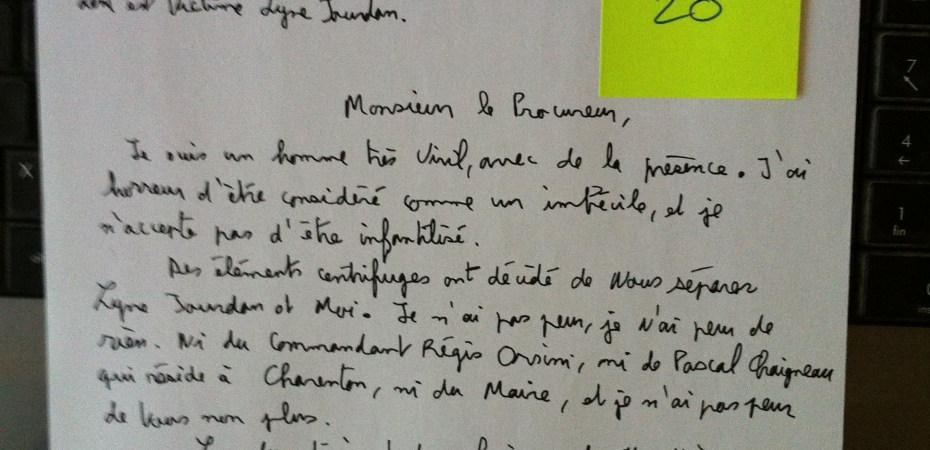 est victime Lyne Jourdan.
20
Monsieur le Procureur,
Je suis un homme très viril, avec de la présence. J'ai
horreur d'être considéré comme un imbécile, et je
n'accepte pas d'être infantilisé.
Des éléments centrifuges ont décidé de nous séparer
Lyne Jourdan et Moi. Je n'ai pas peur, je n'ai peur de
rien. Ni du Commandant Régis Orsini, ni de Pascal Chaigneau
qui réside à Charenton, ni du Maire, et je n'ai pas peur
de vous non plus.
X
7
4
1
fin